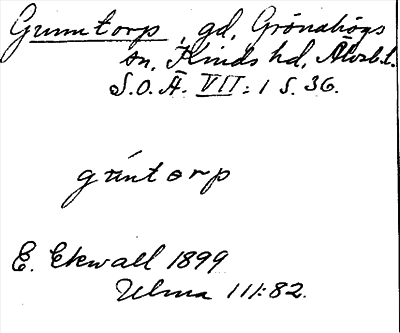 Grumtorp, gd, Grönahögs
sn, Kinds hd, Älvsb.l.
S.O.Ä. VII:1 S. 36.
grúntorp
E. Ekwall 1899
Ulma 111:82.